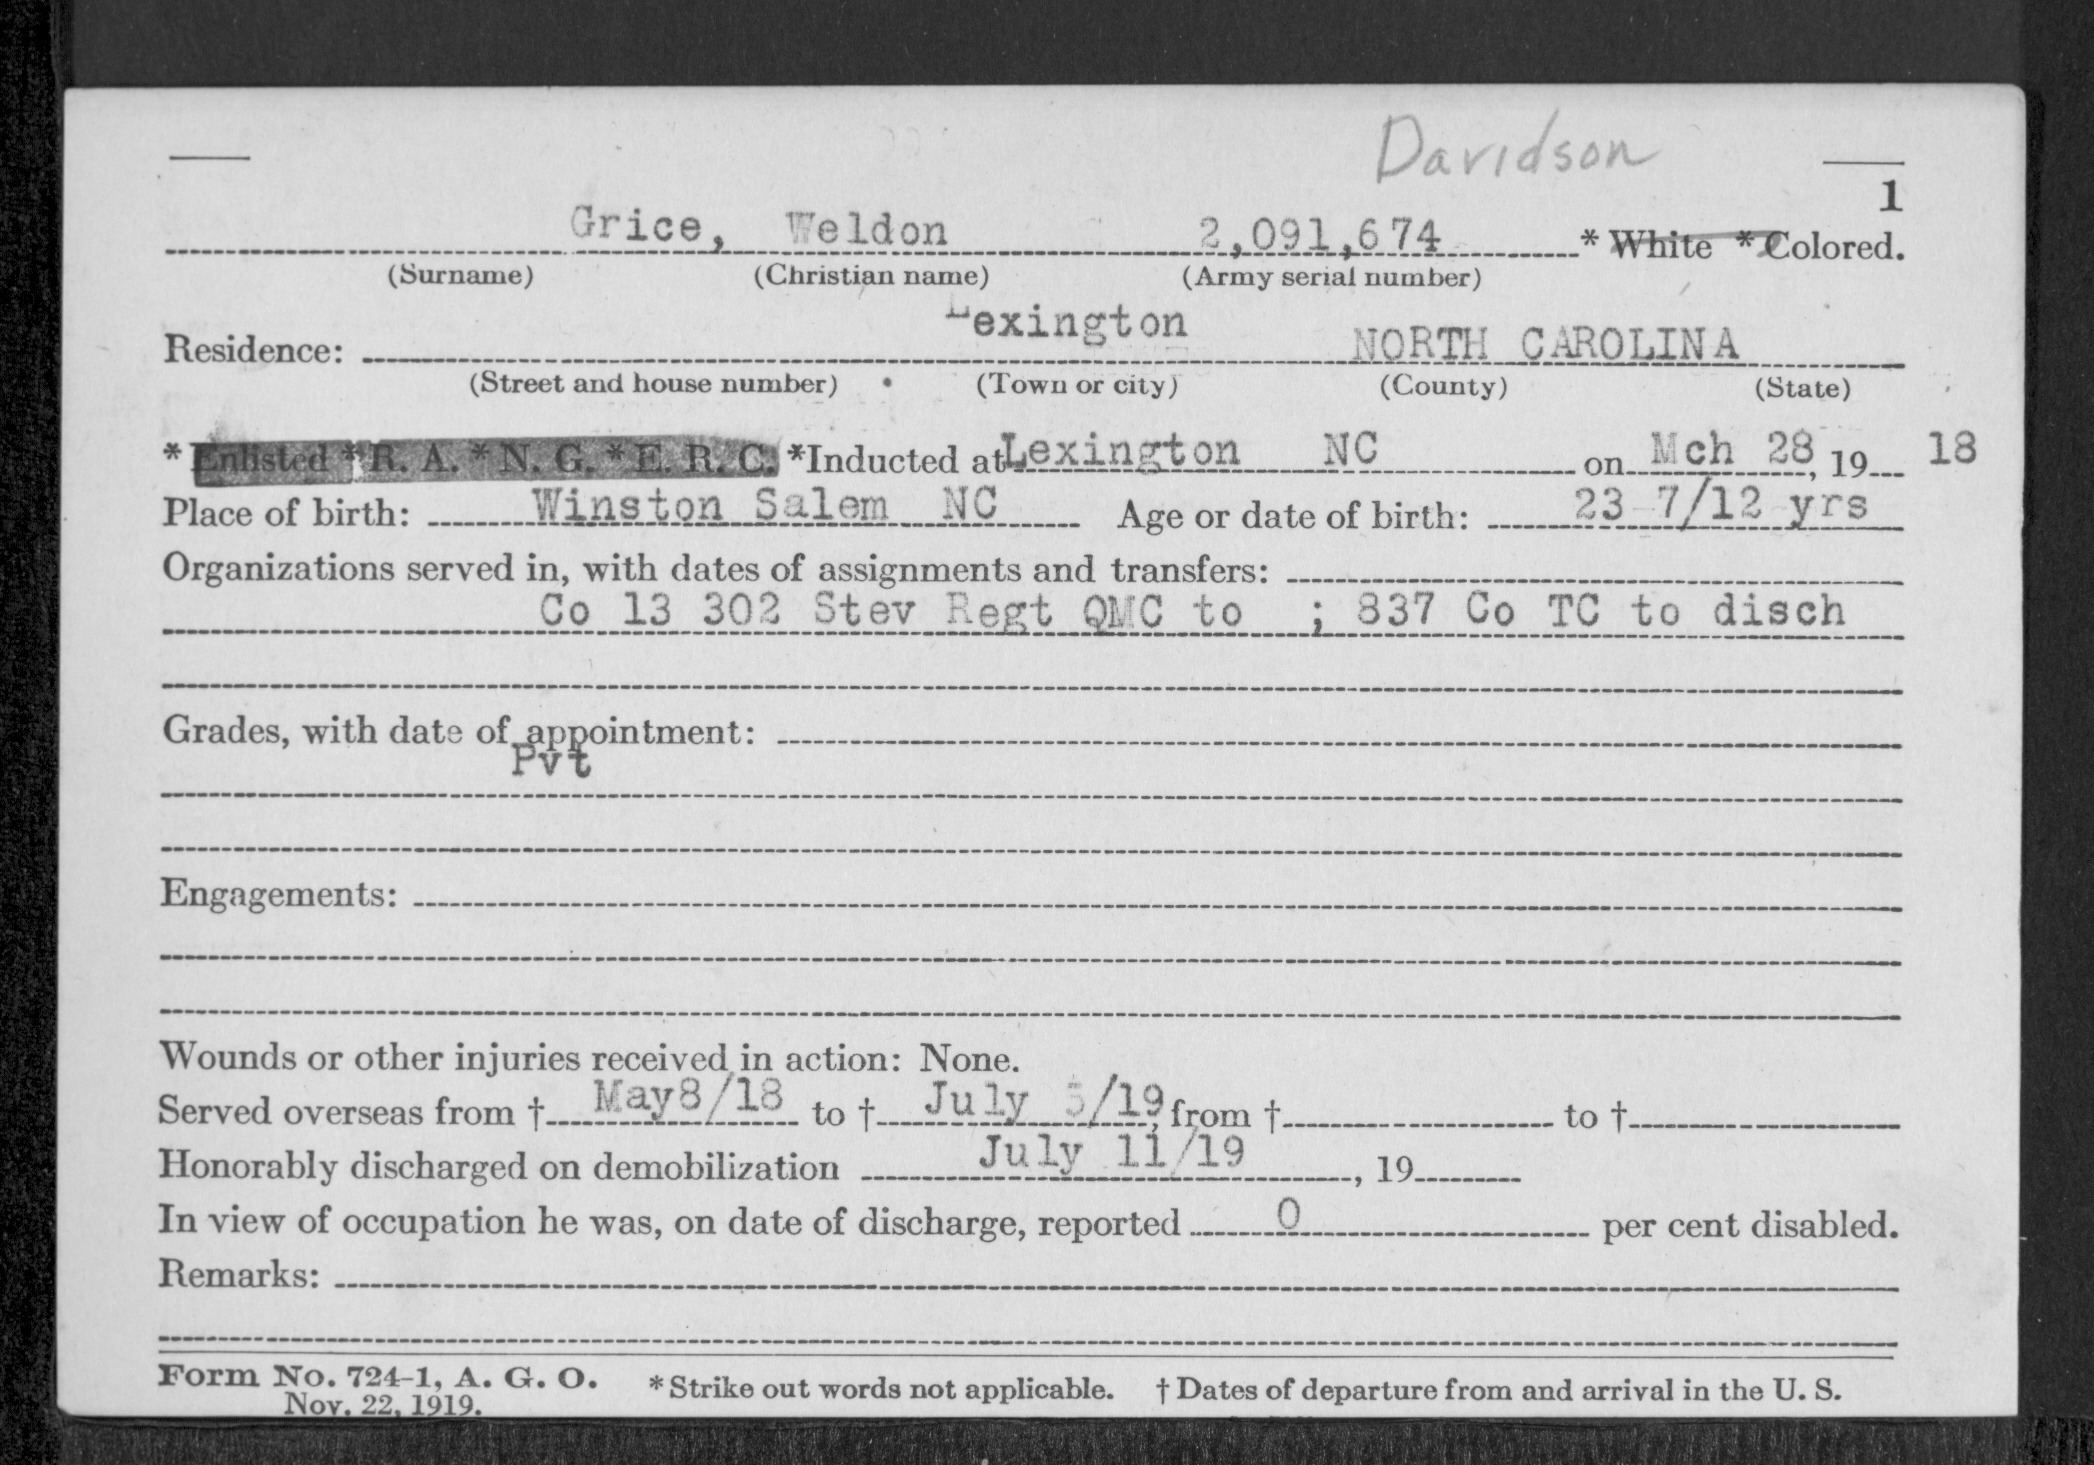 Davidson
1
Grice, Weldon 2,091,674 * White * Colored.
(Surname) (Christian name) (Army serial number)
Residence: Lexington NORTH CAROLINA
(Street and house number) (Town or city) (County) (State)
* Enlisted * R. A. * N. G. * E. R. C. *Inducted at Lexington NC on Mch 28, 19 18
Place of birth: Winston Salem NC Age or date of birth: 23 7/12 yrs
Organizations served in, with dates of assignments and transfers:
Co 13 302 Stev Regt QMC to ; 837 Co TC to disch
Grades, with date of appointment:
Pvt
Engagements:
Wounds or other injuries received in action: None.
Served overseas from † May8/18 to † July 5/19, from † to †
Honorably discharged on demobilization July 11/19, 19
In view of occupation he was, on date of discharge, reported 0 per cent disabled.
Remarks:
Form No. 724-1, A. G. O. * Strike out words not applicable. † Dates of departure from and arrival in the U. S.
Nov. 22, 1919.